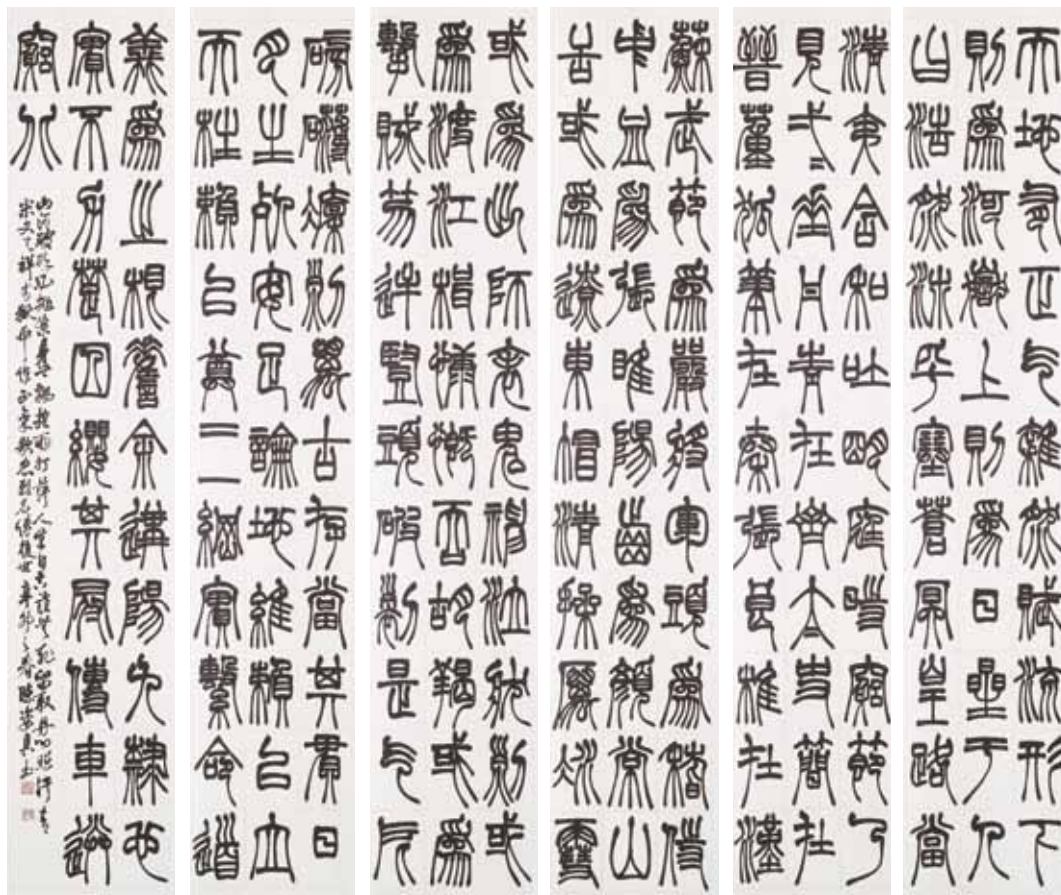 天地有正气雜然賦流形下
則為河嶽上則為日星於人
曰浩然沛乎塞蒼冥皇路當
清夷含和吐明庭時窮節乃
見一一垂丹青在齊太史簡在
晉董狐筆在秦張良椎在漢
蘇武節為嚴將軍頭為嵇侍
中血為張睢陽齒為顏常山
舌或為遼東帽清操厲冰雪
或為出師表鬼神泣壯烈或
為渡江楫慷慨吞胡羯或為
擊賊笏逆豎頭破裂是气所
磅礴凜烈萬古存當其貫日
月生死安足論地維賴以立
天柱賴以尊三綱實繫命道
義為之根嗟余遘陽九隸也
實不力楚囚纓其冠傳車送
窮北
山河破碎風飄絮身世飄搖雨打萍人生自古誰無死留取丹心照汗青
宋文天祥 作正氣歌 辛卯之春